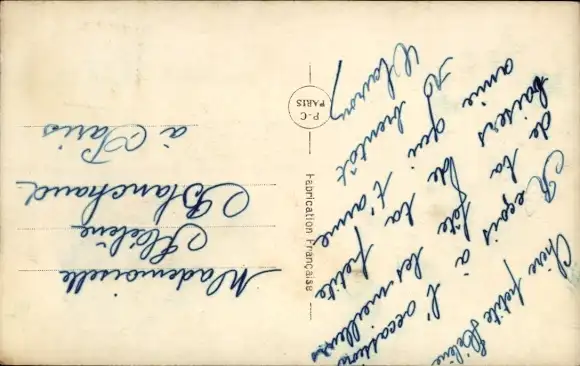 Chère petite Hélène
Reçois à l'occasion
de ta fête les meilleurs
baisers de ta petite
amie qui t'aime
bientôt
Mademoiselle
Hélène
Blanchaud
à Paris
P-C
PARIS
Fabrication Française